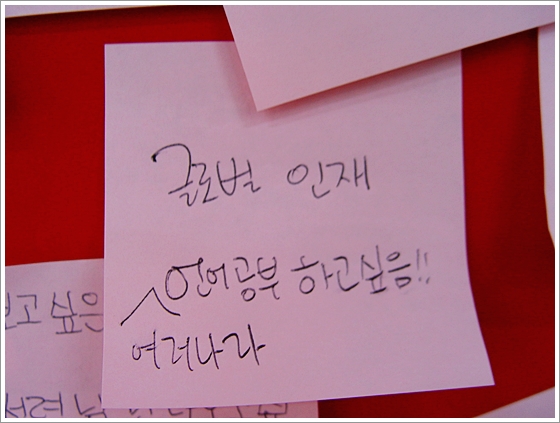 글로벌 인재
언어공부 하고싶음!!
여러나라
보고 싶은